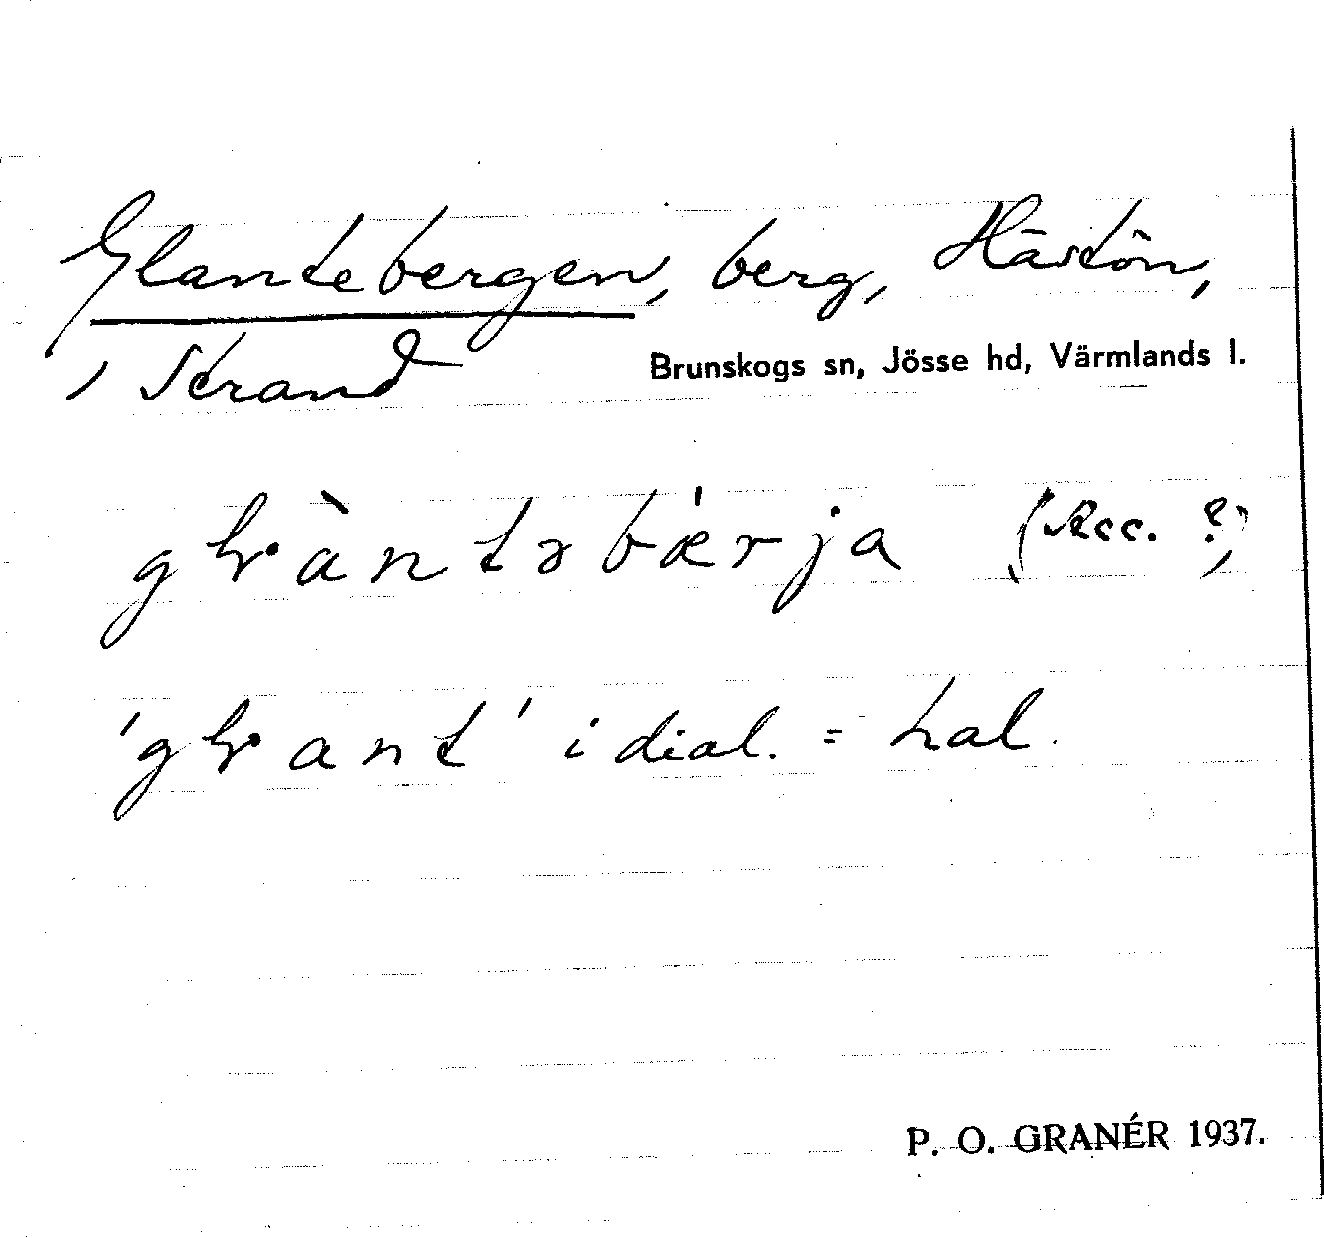 Glantebergen, berg, Hästön,
i Strand
Brunskogs sn, Jösse hd, Värmlands l.
gɭàntəbæ̀rja (Acc. ?)
'gɭant' i dial. = hal.
P. O. GRANÉR 1937.